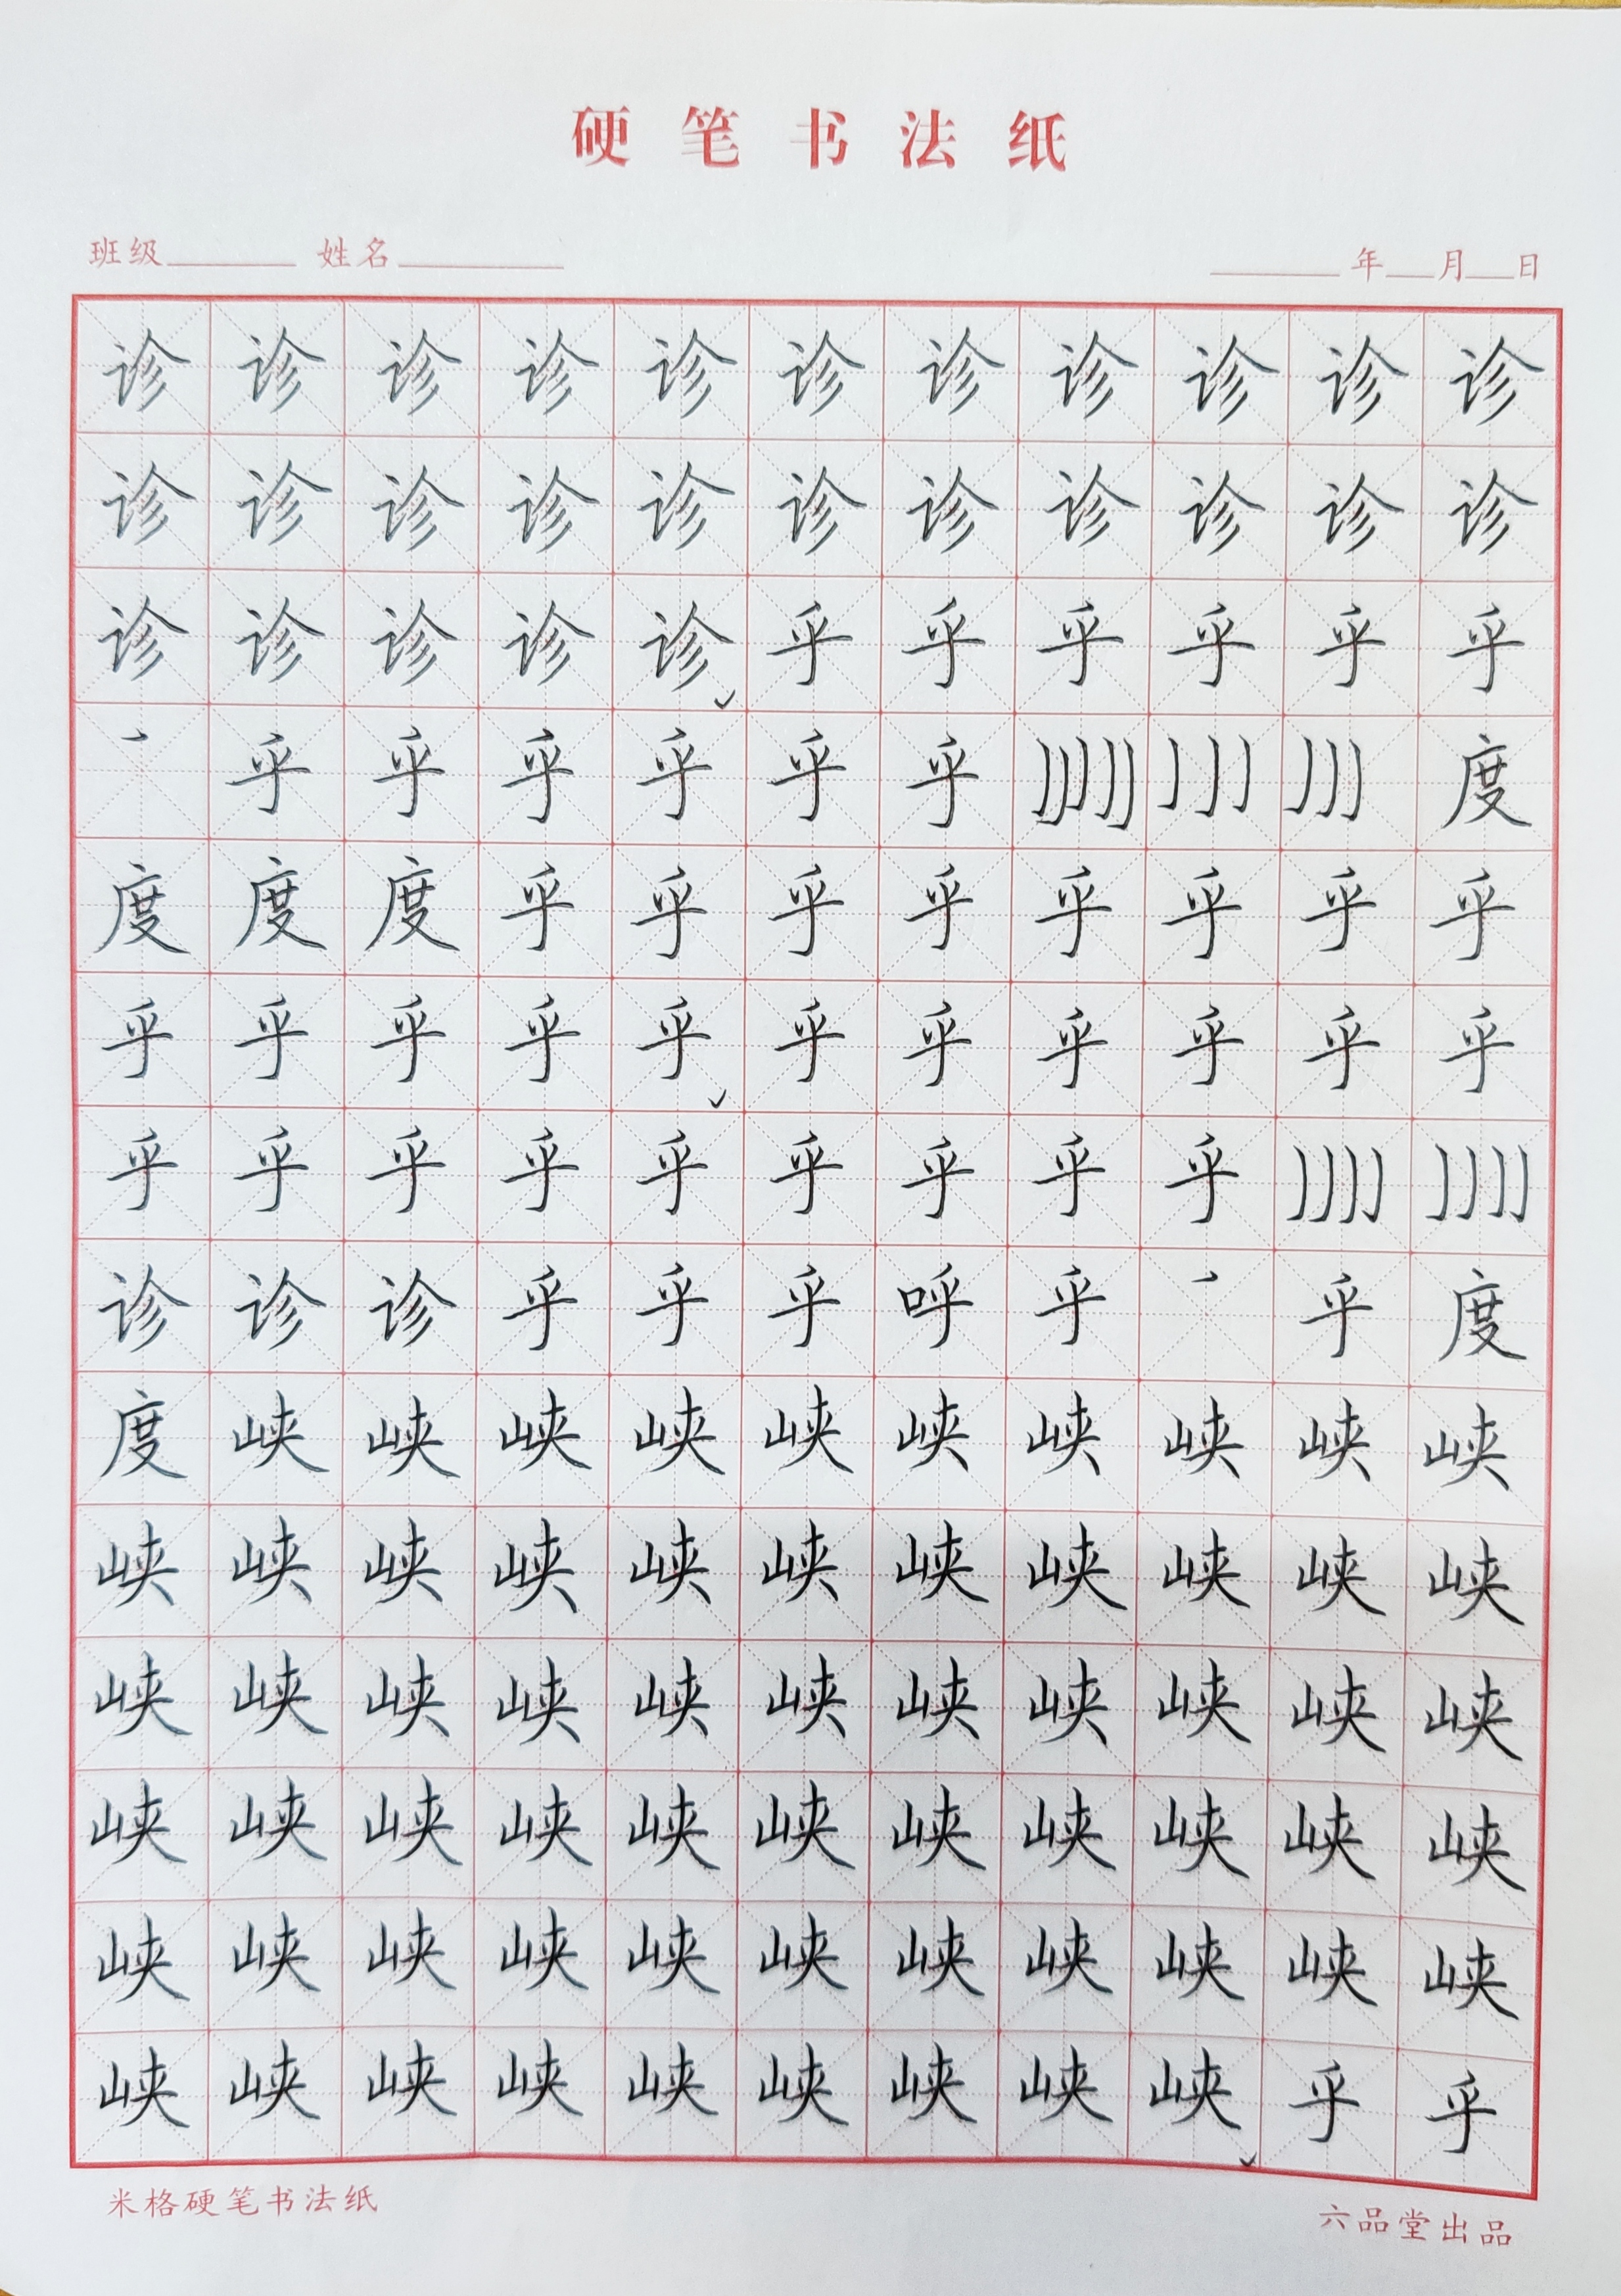 硬笔书法纸
班级 姓名 年 月 日
诊诊诊诊诊诊诊诊诊诊诊
诊诊诊诊诊诊诊诊诊诊诊
诊诊诊诊诊乎乎乎乎乎乎
乎乎乎乎乎乎度
度度度乎乎乎乎乎乎乎乎
乎乎乎乎乎乎乎乎乎乎乎
乎乎乎乎乎乎乎乎乎
诊诊诊乎乎乎呼乎乎度
度峡峡峡峡峡峡峡峡峡峡
峡峡峡峡峡峡峡峡峡峡峡
峡峡峡峡峡峡峡峡峡峡峡
峡峡峡峡峡峡峡峡峡峡峡
峡峡峡峡峡峡峡峡峡峡峡
峡峡峡峡峡峡峡峡峡乎乎
米格硬笔书法纸 六品堂出品